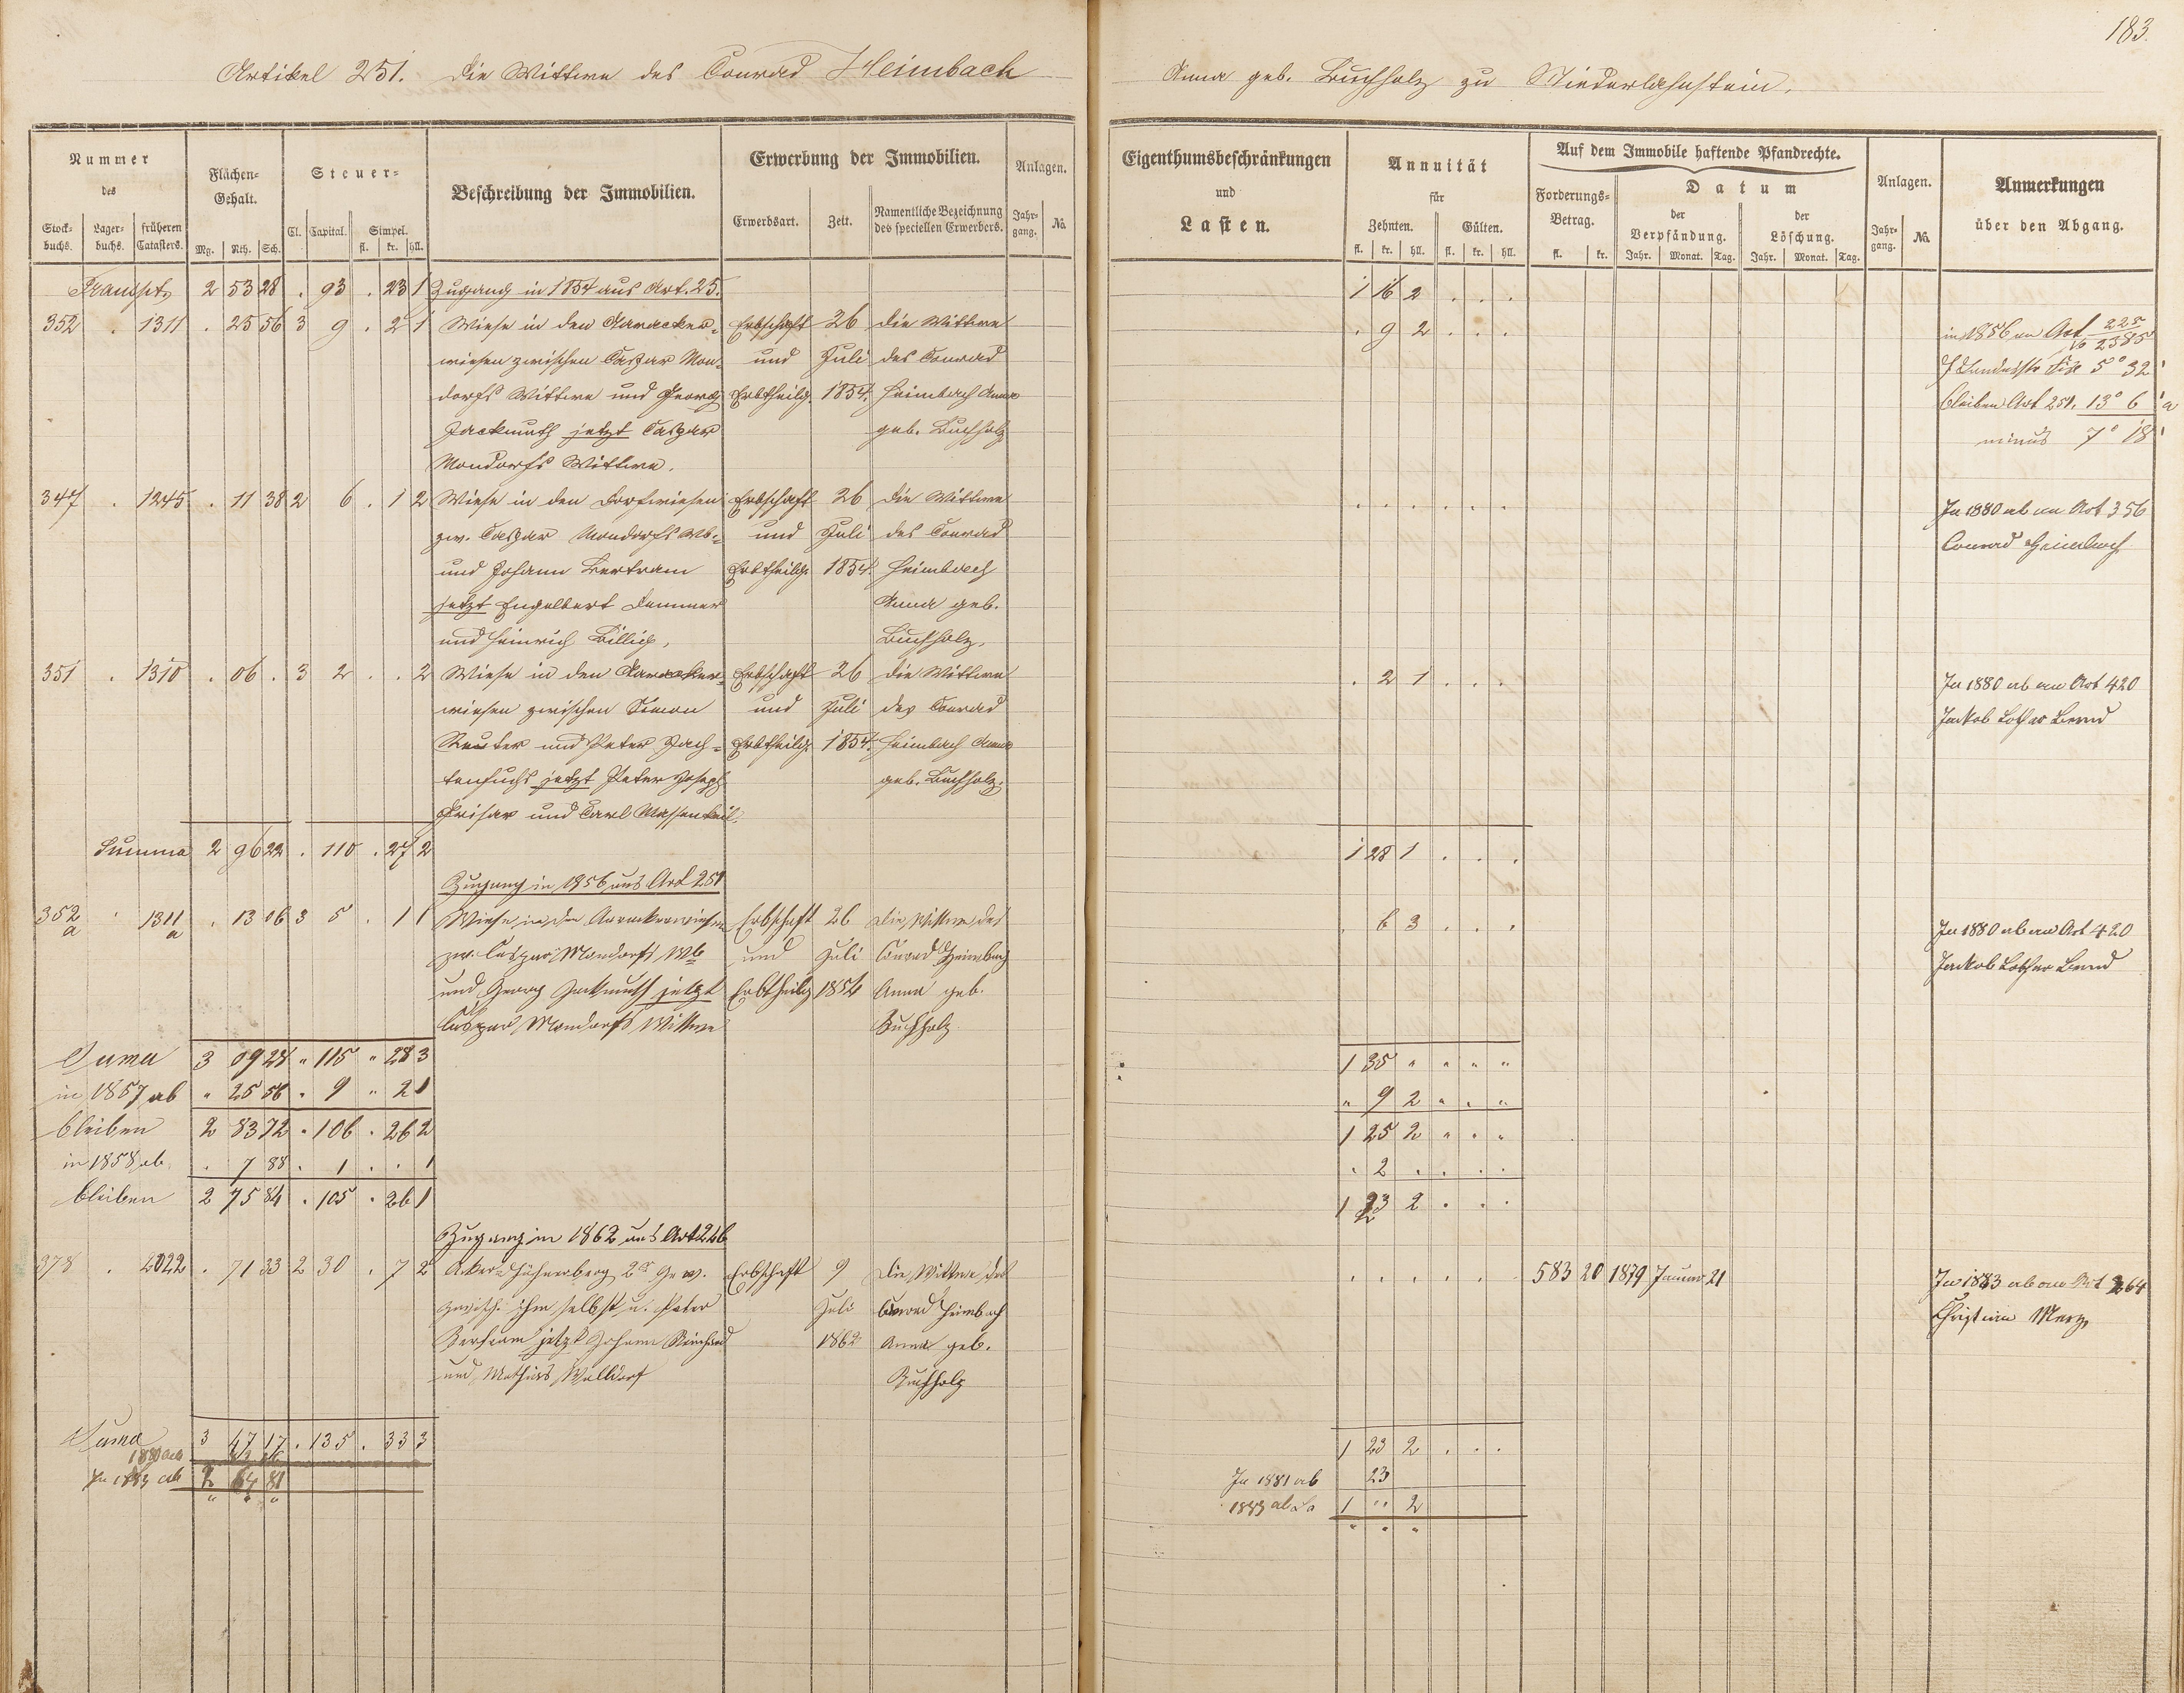 183.
Artikel 251. Die Wittwe des Conrad Heimbach
Anna geb. Buchholz zu Niederlahnstein.
Nummer des
Stockbuchs. Lagerbuchs. früheren Catasters.
Flächen-Gehalt.
Mg. Rth. Sch.
Steuer-
Cl. Capital. Simpel. fl. kr. hll.
Beschreibung der Immobilien.
Erwerbung der Immobilien.
Erwerbsart. Zeit. Namentliche Bezeichnung des speciellen Erwerbers.
Anlagen.
Jahrgang. No.
Eigenthumsbeschränkungen
und
Lasten.
Annuität
für
Zehnten. Gülten.
fl. kr. hll. fl. kr. hll.
Auf dem Immobile haftende Pfandrechte.
Forderungs-Betrag. fl. kr.
Datum
der Verpfändung. Jahr. Monat. Tag.
der Löschung. Jahr. Monat. Tag.
Anlagen.
Jahrgang. No.
Anmerkungen
über den Abgang.
Transpt. 2 53 28 . 93 . 23 1 Zugang in 1854 aus Art. 25. 1 16 2 . . .
352 . 1311 . 25 56 3 9 . 2 1 Wiese in den Aaracker- Erbschaft 26 die Wittwe . 9 2 . . . in 1856 an Art 225
wiesen zwischen Caspar Mon- und Juli des Conrad 5° 32'
dorfs Wittwe und Georg Erbtheilg. 1854. Heimbach Anna bleiben Art 251. 13° 6' a
Jackmuth jetzt Caspar geb. Buchholz minus 7° 18'
Mondorfs Wittwe.
347 . 1245 . 11 38 2 6 . 1 2 Wiese in den Dorfwiesen Erbschaft 26 die Wittwe . . . . . . In 1880 ab an Art 356
zw. Caspar Mondorfs Wb. und Juli des Conrad Conrad Heimbach
und Johann Bertram Erbtheilg. 1854. Heimbach
jetzt Engelbert Dammer Anna geb.
und Heinrich Billig. Buchholz.
351 . 1310 . 06 . 3 2 . . 2 Wiese in den Aaracker- Erbschaft 26 die Wittwe . 2 1 . . . In 1880 ab an Art 420
wiesen zwischen Simon und Juli des Conrad Jackob Lothar Bernd
Reuter und Peter Zach- Erbtheilg. 1854. Heimbach Anna
tenfuchs jetzt Peter Joseph geb. Buchholz.
und Carl Massenkeil.
Summa 2 96 22 . 110 . 27 2 1 28 1 . . .
Zugang in 1856 aus Art 251
352a . 1311a . 13 06 3 5 . 1 1 Wiese in den Aarackerwiesen Erbschaft 26 Die Wittwe des . 6 3 . . . In 1880 ab an Art 420
zw. Caspar Mondorfs Wb und Juli Conrad Heimbach Jackob Lothar Bernd
und Georg Jackmuth jetzt Erbtheilg 1854 Anna geb.
Caspar Mondorfs Wittwe Buchholz.
Suma 3 09 28 " 115 " 28 3 1 35 " " " "
in 1857 ab " 25 56 " 9 " 2 1 " 9 2 " " "
bleiben 2 83 72 " 106 . 26 2 1 25 2 " " "
in 1858 ab . 7 88 . 1 . . 1 . 2 . . . .
bleiben 2 75 84 . 105 . 26 1 1 23 2 . . .
Zugang in 1862 aus Art 246
378 . 2022 . 71 33 2 30 . 7 2 Acker Hühnerberg 2r Gew. Erbschaft 9 Die Wittwe des . . . . . . 583 20 1879 Januar 21 In 1883 ab an Art 264
zwisch. ihm selbst u. Peter Juli Conrad Heimbach Christian Merz
Bertram jetzt Johann Reinhard 1862 Anna geb.
und Mathias Walldorf Buchholz
Suma 3 47 17 . 135 . 33 3 1 23 2 . . .
1880 ab In 1881 ab 23
In 1883 ab 2 64 81 1883 ab 1 " 2
" " " " " "